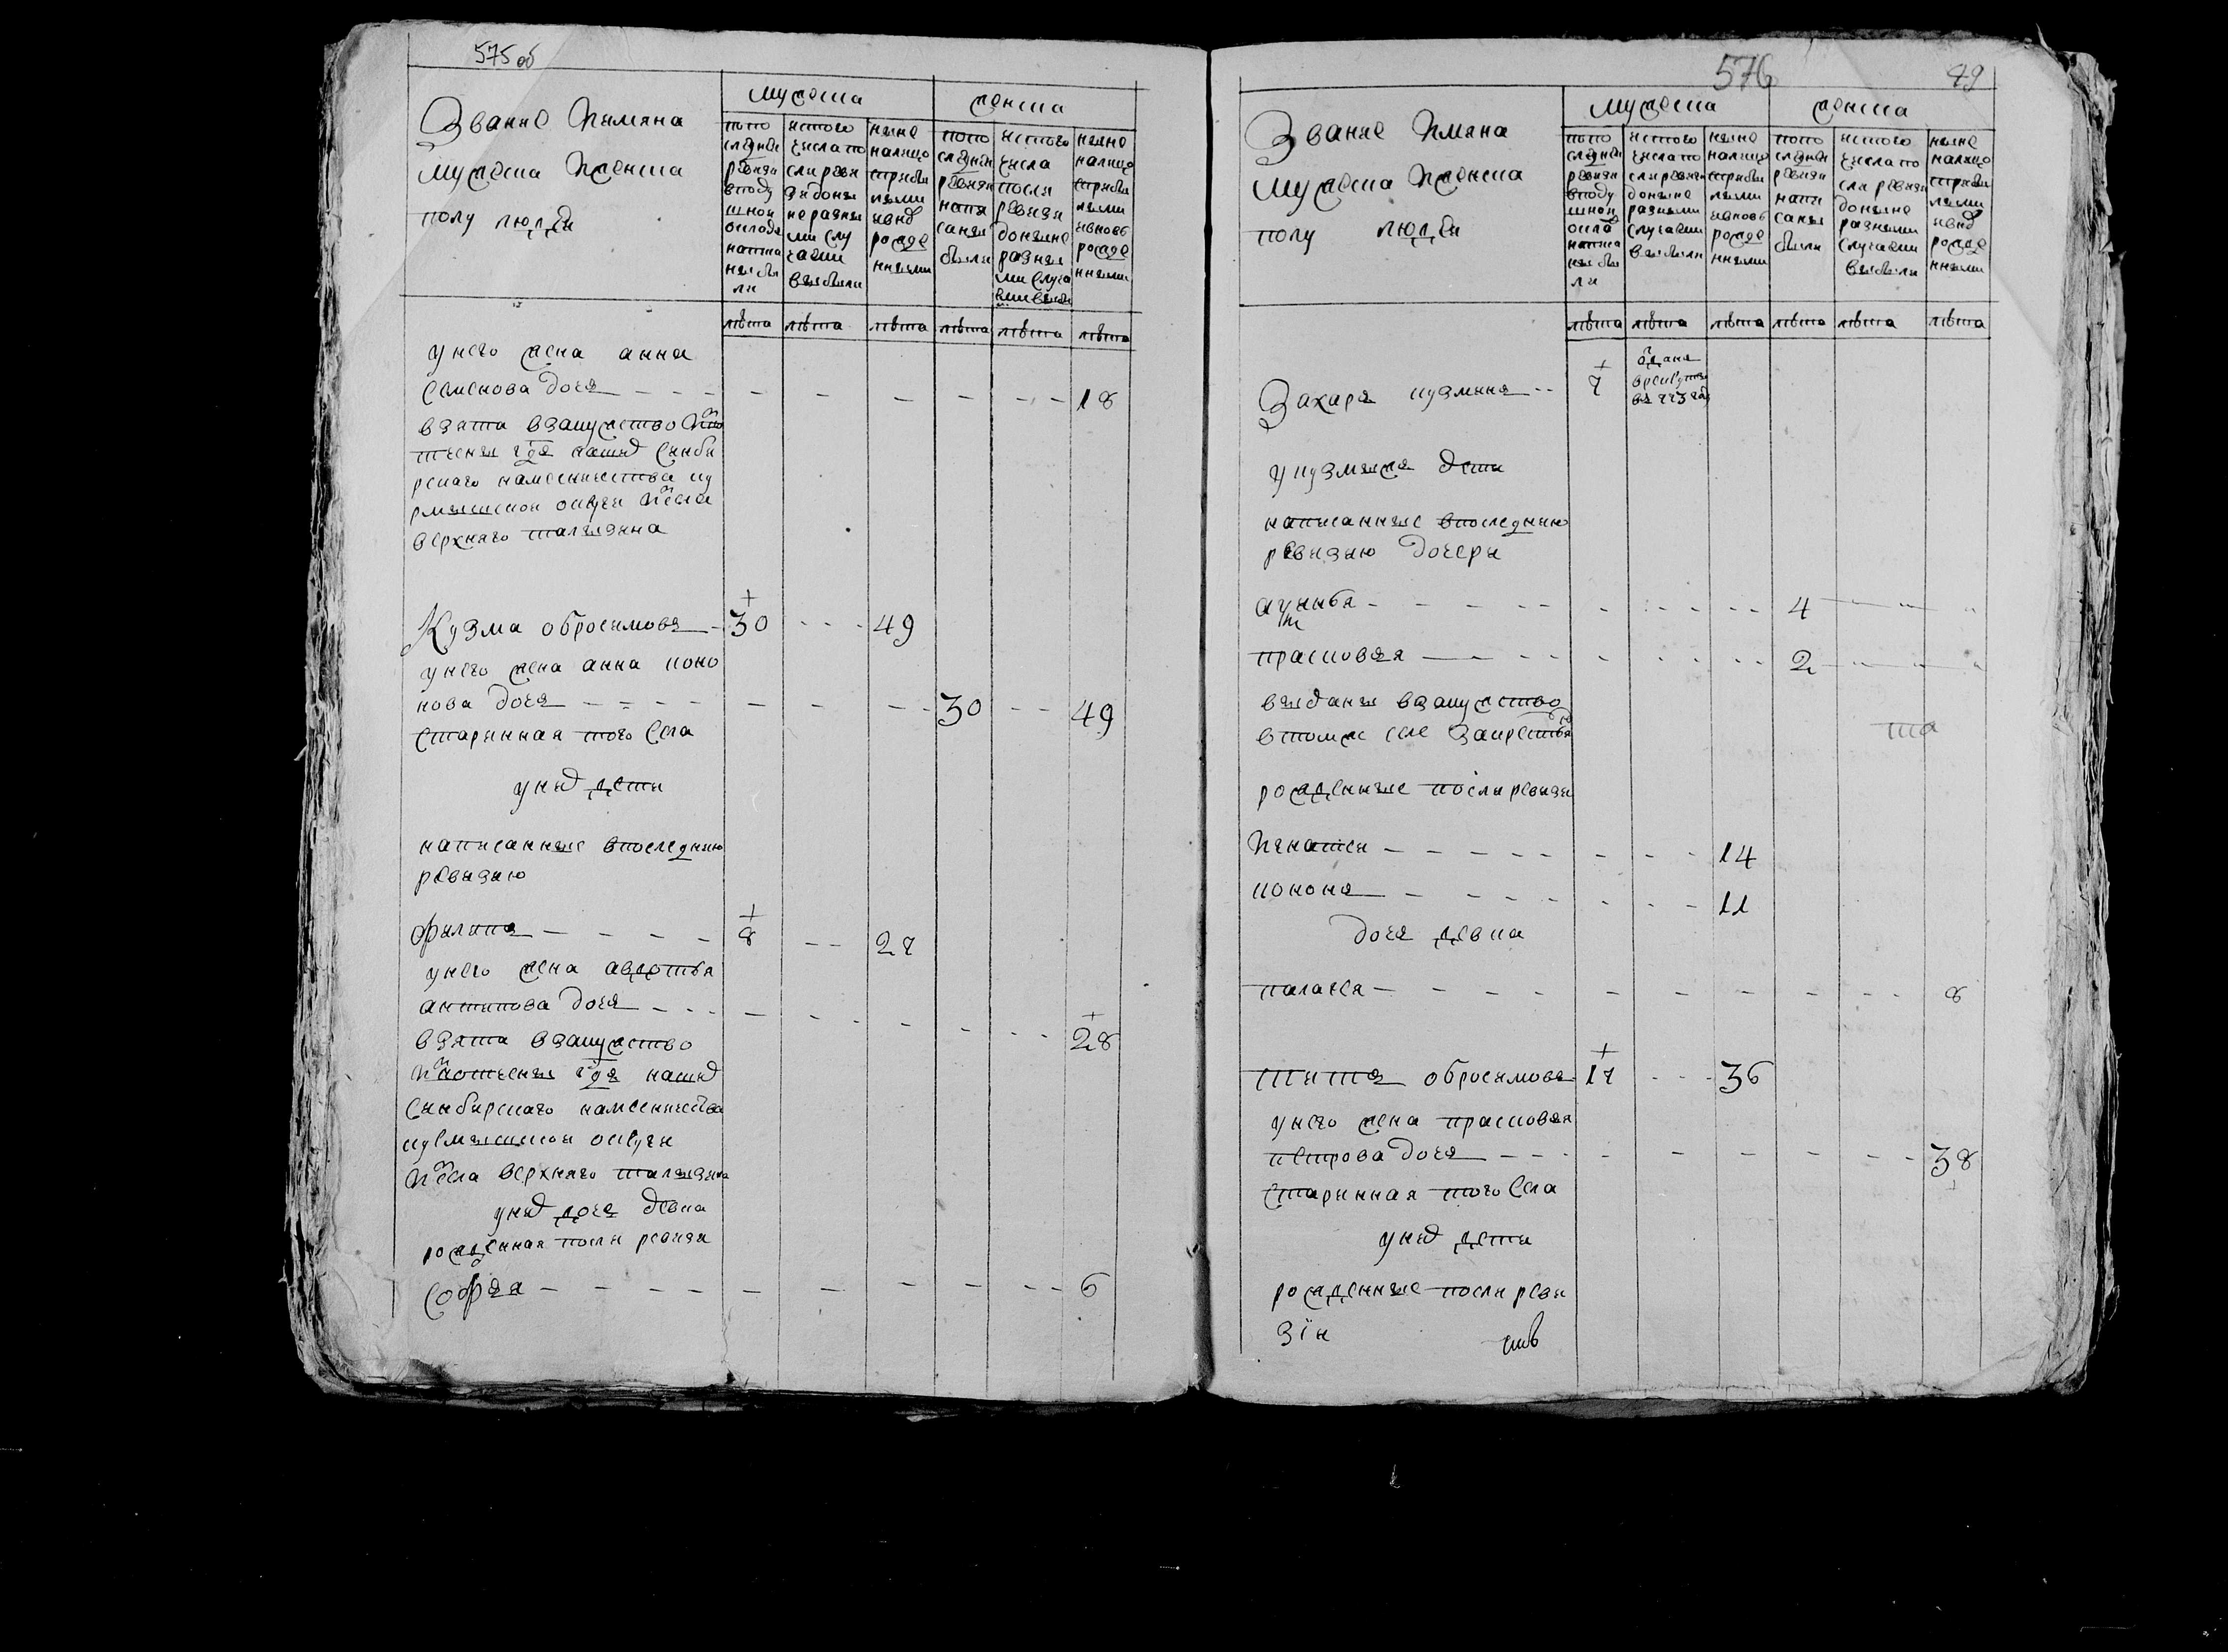 575 об
Звание Иимяна
мужеска Иженска
полу людей
мужеска
женска
попо
следней
ревизи
вподу
шной
окладъ
напиа
ны бы
ли
истого
числа по
сли реви
зи доны
не разны
ми слу
чаями
выбыли
ныне
налицо
сприбы
лыми
ивнов
рожде
нными
попо
следней
ревизи
напи
саны
были
истого
числа
посли
ревизи
доныне
разны
ми случа
ями выбы
ныне
налицо
сприбы
лыми
ивновь
рожде
нными
лѣта лѣта лѣта лѣта лѣта лѣта
унего жена анна
семенова дочь 18
взята взамужство
тчены где нашей Синби
рскаго намесничества ку
рмышской округи Исела
верхняго талызина
Кузма обросимовъ 30 49
унего жена анна коно
нова дочь 30 49
старинная того села
уних дети
написанные впоследнию
ревизию
филипъ 8 27
унего жена авдотья
антипова дочь 28
взята взамужство
Иплотчены где нашей
Синбирскаго намесничества
курмышской округи
Исела верхняго талызина
уних дочь девка
рожденная посли ревизи
софья 6
576
49
Звание Имяна
мужеска Иженска
полу людей
мужеска
женска
попо
следней
ревизи
вподу
шной
окла
напиа
ны бы
ли
истого
числа по
сли ревизи
доныне
разными
случаями
выбыли
ныне
налицо
сприбы
лыми
ивновь
рожде
нными
попо
следней
ревизи
напи
саны
были
истого
числа по
сли ревизи
доныне
разными
случаями
выбыли
ныне
налицо
сприбы
лыми
ивнов
рожде
нными
лѣта лѣта лѣта лѣта лѣта лѣта
Захаръ кузминъ 7 оданъ
врекруты
въ 773 году
укузмыжа дети
написанные впоследнию
ревизию дочери
акулина 4
прасковья 2
выданы взамужство
втомже селе
рожденные посли ревизи
Игнатей 14
кононъ 11
дочь девка
палагея 8
титъ обросимовъ 17 36
унего жена прасковья
петрова дочь 38
старинная того села
уних дети
рожденные посли реви
зiи